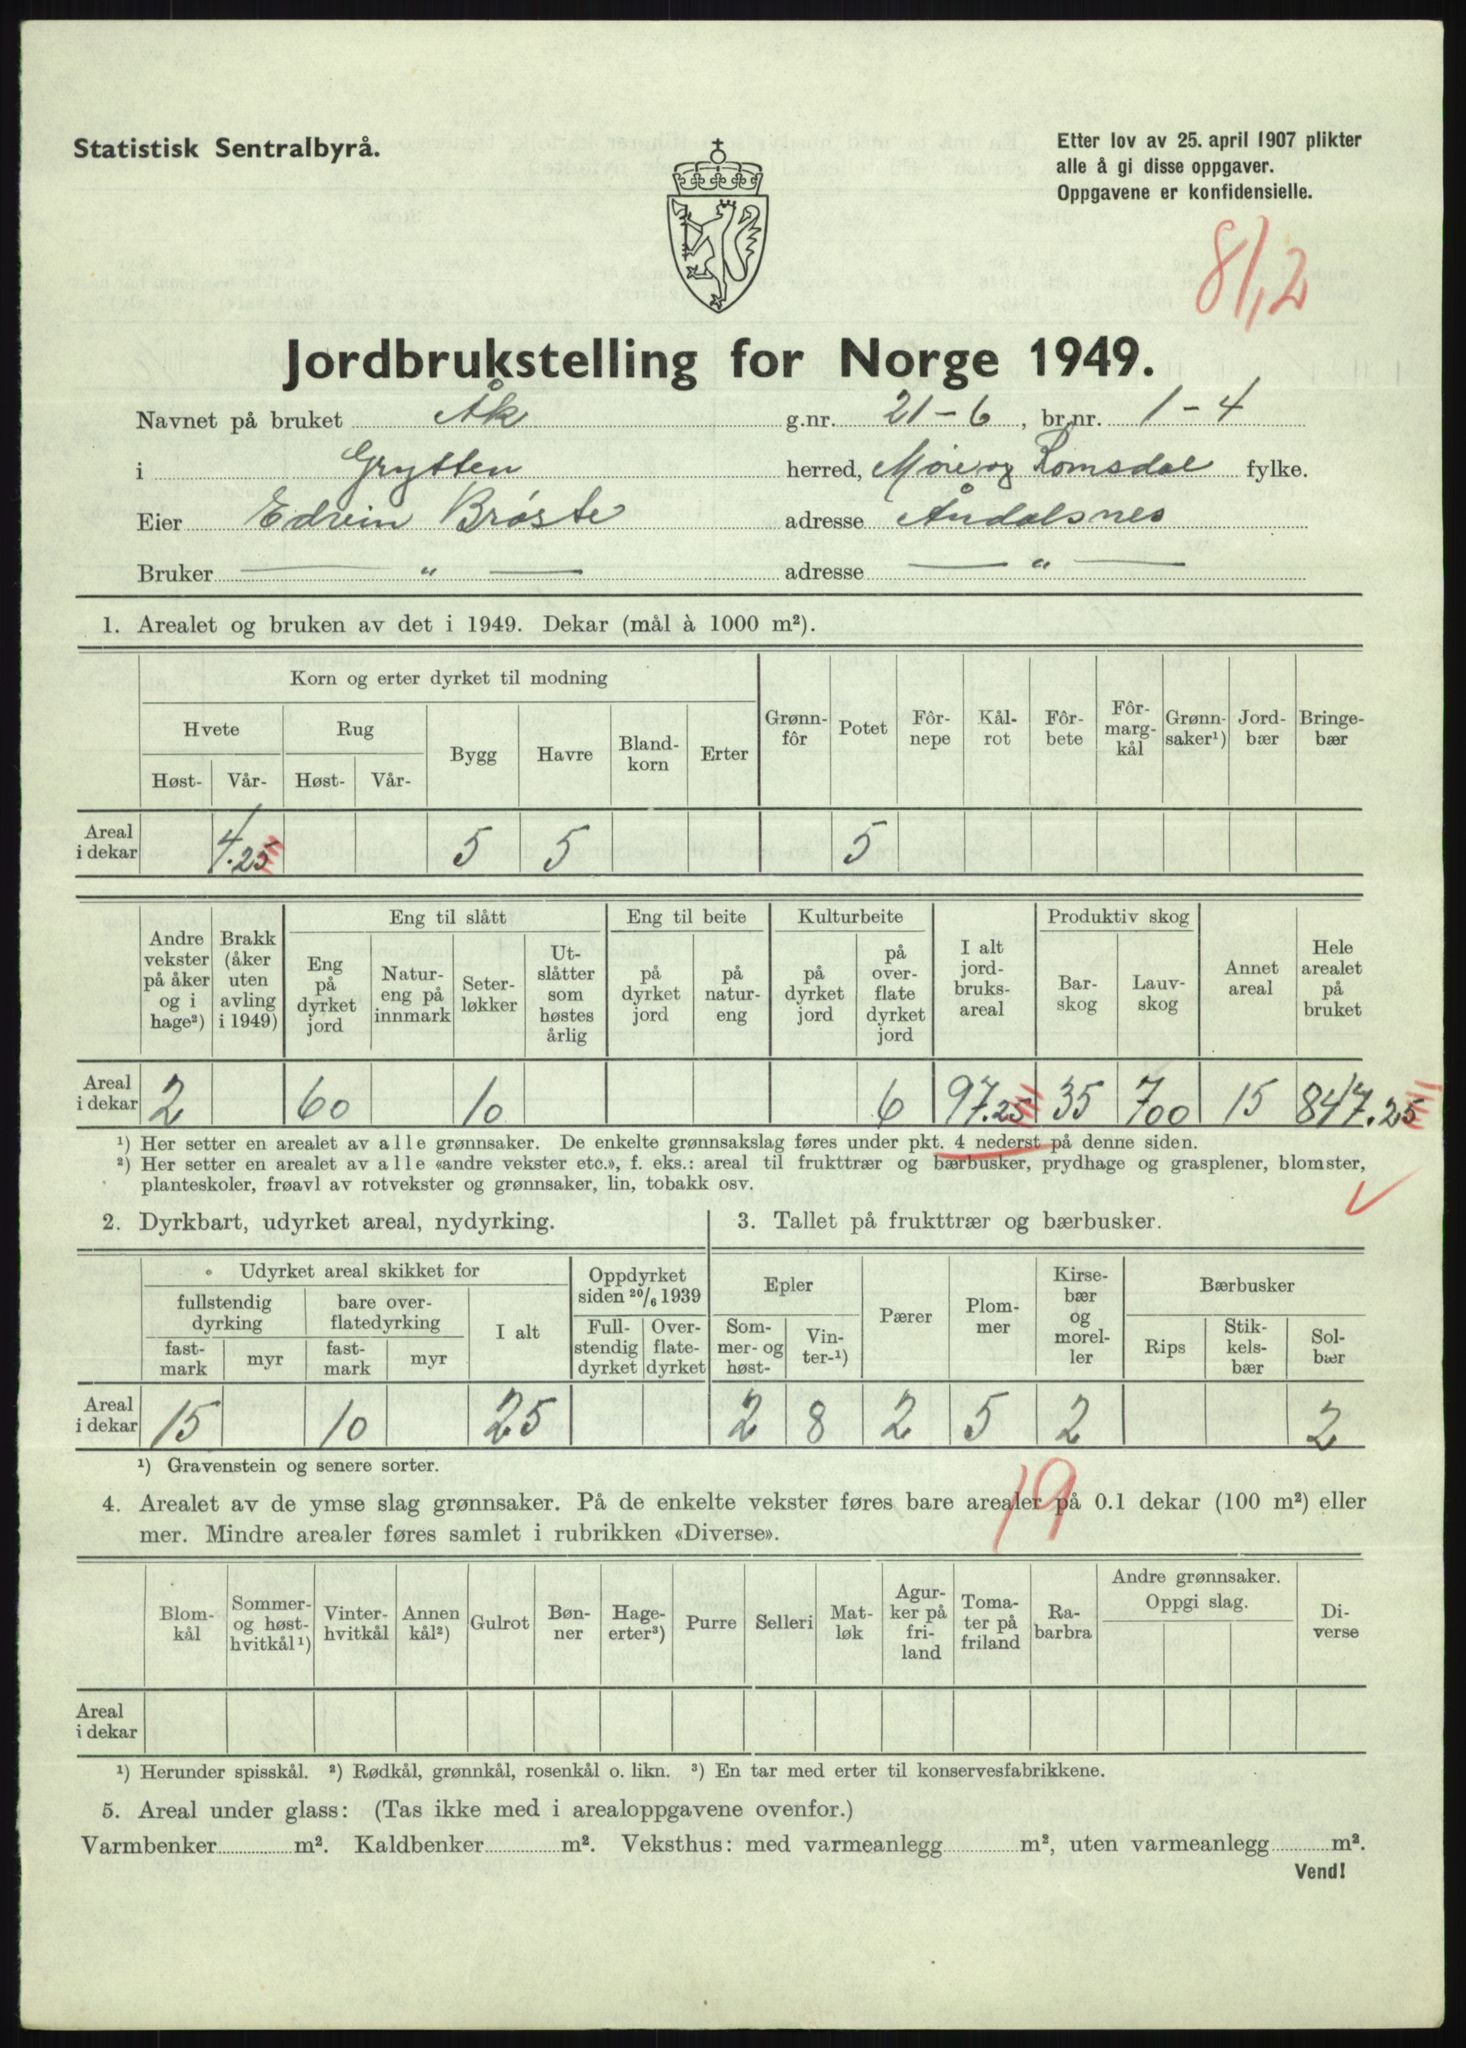 Statistisk Sentralbyrå.
Etter lov av 25. april 1907 plikter
alle å gi disse oppgaver.
Oppgavene er konfidensielle.
81,2
Jordbrukstelling for Norge 1949.
Navnet på bruket Åk g.nr. 21-6, br.nr. 1-4
i Grytten herred, Møre og Romsdal fylke.
Eier Edvin Brøste adresse Åndalsnes
Bruker — „ — adresse — „ —
1. Arealet og bruken av det i 1949. Dekar (mål à 1000 m²).
Korn og erter dyrket til modning
Hvete Rug Bygg Havre Bland-korn Erter Grønn-fôr Potet Fôr-nepe Kål-rot Fôr-bete Fôr-marg-kål Grønn-saker¹) Jord-bær Bringe-bær
Høst- Vår- Høst- Vår-
Areal i dekar 4.25 5 5 5
Andre vekster på åker og i hage²) Brakk (åker uten avling i 1949) Eng til slått Eng til beite Kulturbeite I alt jord-bruks-areal Produktiv skog Annet areal Hele arealet på bruket
Eng på dyrket jord Natur-eng på innmark Seter-løkker Ut-slåtter som høstes årlig på dyrket jord på natur-eng på dyrket jord på over-flate dyrket jord Bar-skog Lauv-skog
Areal i dekar 2 60 10 6 97.25 35 700 15 847.25
¹) Her setter en arealet av alle grønnsaker. De enkelte grønnsakslag føres under pkt. 4 nederst på denne siden.
²) Her setter en arealet av alle «andre vekster etc.», f. eks.: areal til frukttrær og bærbusker, prydhage og grasplener, blomster,
planteskoler, frøavl av rotvekster og grønnsaker, lin, tobakk osv.
2. Dyrkbart, udyrket areal, nydyrking.
3. Tallet på frukttrær og bærbusker.
Udyrket areal skikket for Oppdyrket siden 20/6 1939 Epler Pærer Plom-mer Kirse-bær og morel-ler Bærbusker
fullstendig dyrking bare over-flatedyrking I alt Full-stendig dyrket Over-flate-dyrket Som-mer- og høst- Vin-ter-¹) Rips Stik-kels-bær Sol-bær
fast-mark myr fast-mark myr
Areal i dekar 15 10 25 2 8 2 5 2 2
¹) Gravenstein og senere sorter.
19
4. Arealet av de ymse slag grønnsaker. På de enkelte vekster føres bare arealer på 0.1 dekar (100 m²) eller
mer. Mindre arealer føres samlet i rubrikken «Diverse».
Blom-kål Sommer- og høst-hvitkål¹) Vinter-hvitkål Annen kål²) Gulrot Bøn-ner Hage-erter³) Purre Selleri Mat-løk Agur-ker på fri-land Toma-ter på friland Ra-barbra Andre grønnsaker. Oppgi slag. Di-verse
Areal i dekar
¹) Herunder spisskål. ²) Rødkål, grønnkål, rosenkål o. likn. ³) En tar med erter til konservesfabrikkene.
5. Areal under glass: (Tas ikke med i arealoppgavene ovenfor.)
Varmbenker m². Kaldbenker m². Veksthus: med varmeanlegg m², uten varmeanlegg m².
Vend!